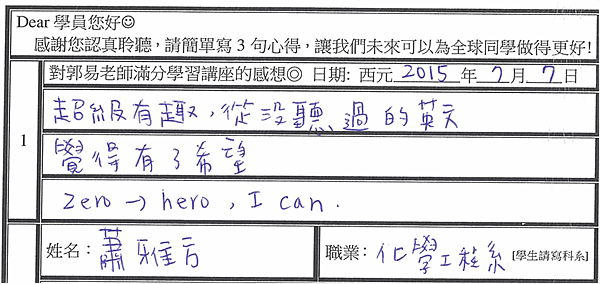 Dear 學員您好☺
感謝您認真聆聽，請簡單寫 3 句心得，讓我們未來可以為全球同學做得更好!
對郭易老師滿分學習講座的感想◎ 日期: 西元 2015 年 7 月 7 日
1
超級有趣，從沒聽過的英文
覺得有了希望
zero → hero, I can.
姓名：蕭雅方 職業：化學工程系 [學生請寫科系]